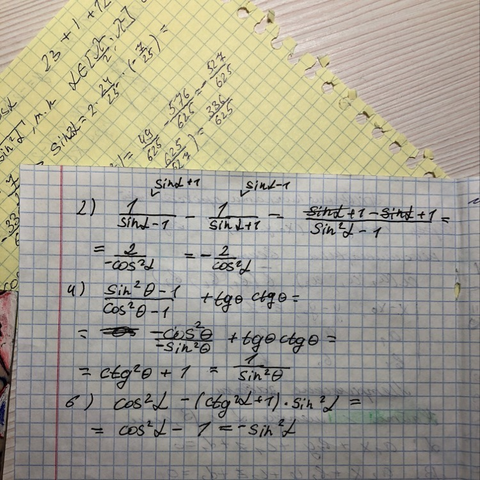 23 + 1 + 12
sin2α = 2 · 24/25 · (-7/25) =
49/625 - 576/625 = -527/625
336/625
sinα+1 sinα-1
2) 1/(sinα-1) - 1/(sinα+1) = (sinα+1-sinα+1)/(sin²α-1) =
= 2/(-cos²α) = -2/cos²α
4) (sin²θ-1)/(cos²θ-1) + tgθ ctgθ =
= (-cos²θ)/(-sin²θ) + tgθ ctgθ =
= ctg²θ + 1 = 1/sin²θ
6) cos²α - (ctg²α+1) · sin²α =
= cos²α - 1 = -sin²α